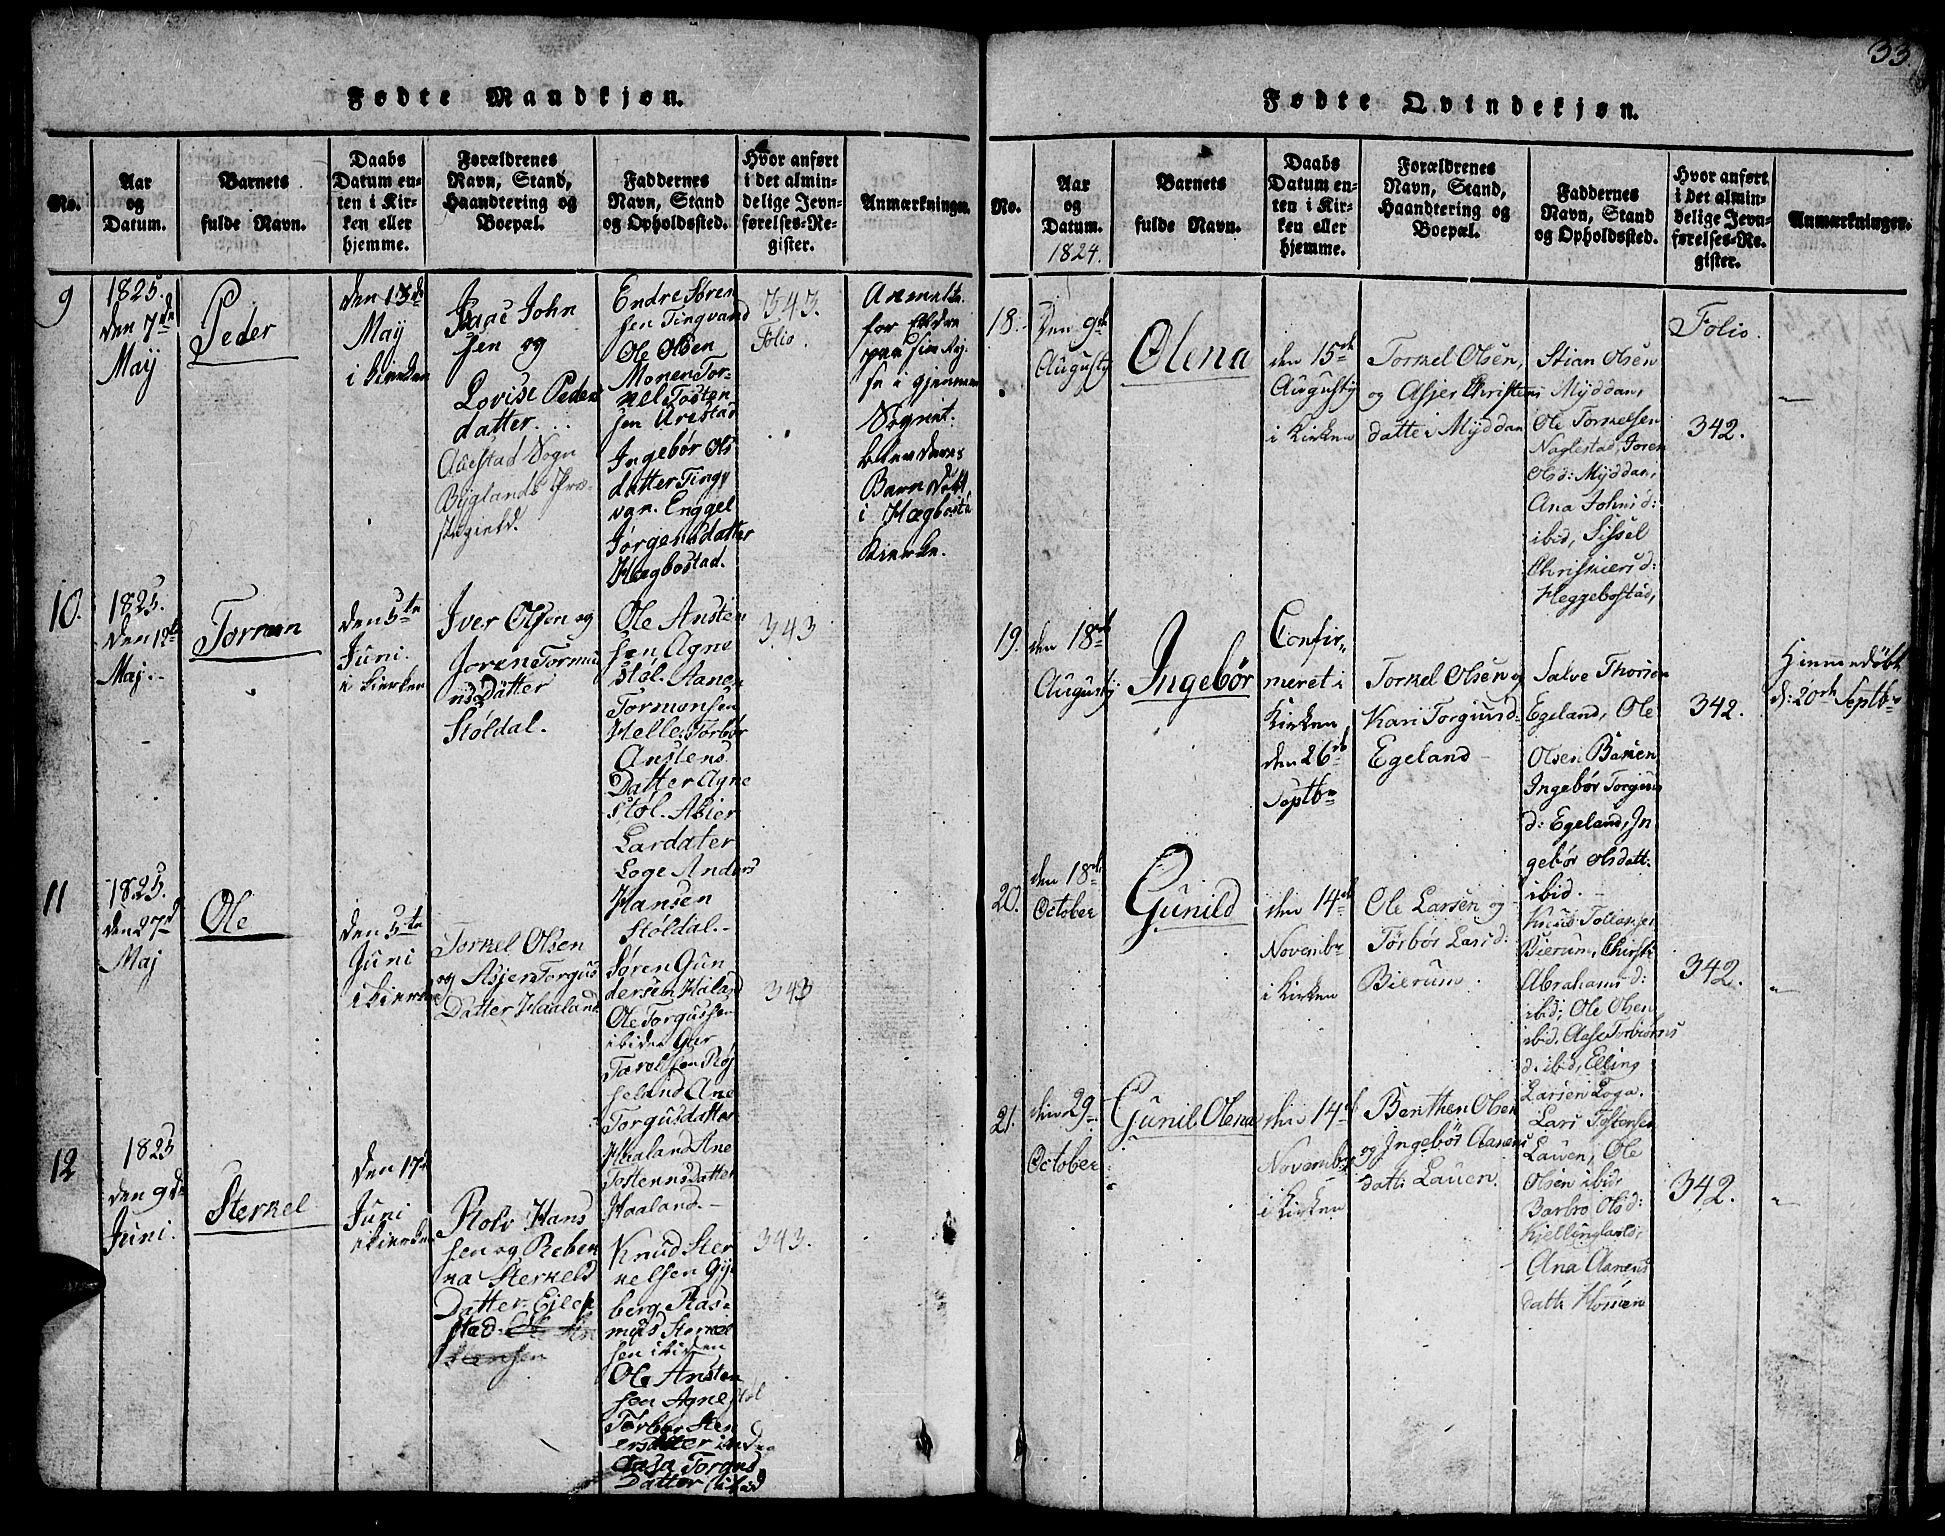 33.
Fødte Mandkjøn.
No.
Aar
og
Datum.
Barnets
fulde Navn.
Daabs
Datum en-
ten i Kir-
ken eller
hjemme.
Forældrenes
Navn, Stand,
Haandtering og
Boepæl.
Faddernes
Navn, Stand
og Opholdssted.
Hvor anført
i det almin-
delige Jevn-
førelses-Re-
gister.
Anmærkninger.
9
1825.
den 7de
Maij
Peder
den 13de
Maij
i kierken
Isaac John
sen og
Lovise Peders
datter.
Auestad Sogn
Byglands Præ-
Endre Søren
sen Tingvand
Ole Olsen
Monen Tor-
kel Tosten
sen Urestad
Ingebør Ols
datter Ting
van. Enggel
Jørgensdatter
Hægbostad.
343.
Folio.
Anmelte
for
paa sin Rej-
se i gjennem
Sognit.
blev deres
Barn Døbt
i Hægbosta
Kierke.
10.
1825.
den 12te
Maj.
Tormon
den 5te
Juni.
i kierken
Iver Olsen og
Joren Tormu
nsDatter
Støldal.
Ole Ansten
sen Agne
støl. Aanen
Tormonsen
Helle. Torbør
Anstens
Datter Agne
støl. Asier
Lardater
Loge Anders
Hansen
Støldal.
343
11
1825.
den 27d
Maj
Ole
den 5te
Juni
i kierken
Torkel Olsen
og Asjer Torgus
Datter Haaland
Søren Gun
dersen Haland
Ole Torgussen
ibiden
Tarelsen Røj
seland Ane
Torgusdatter
Haaland Ane
Tostensdatter
Haaland.
343
12
1825
den 9de
Juni.
Sterkel
den 17de
Juni
i kierken
Rolv Hans
sen og Reben
ka Sterkels
Datter Eilep
stad.
Knud Ster
kelsen Gys
berg, Ras-
mus Sterkel
sen ibiden
Ole Ansten
sen Agnestøl
Torbør Sten
ersdatter
Aasa Torgus
Datter ibid
343.
Fødte Qvindekjøn.
No.
Aar
og
Datum.
1824.
Barnets
fulde Navn.
Daabs
Datum en-
ten i Kir-
ken eller
hjemme.
Forældrenes
Navn, Stand,
Haandtering og
Boepæl.
Faddernes
Navn, Stand
og Opholdssted.
Hvor anført
i det almin-
delige Jevn-
førelses-Re-
gister.
Anmærkninger.
18.
Den 9de
Augusty
Olena
den 15de
Augusty
i Kirken
Torkel Olsen,
og Asjer Christens
datte i Myddan
Stian Olsen
Myddan,
Ole Torkelsen
Naglestad, Joren
Olsd: Myddan,
Ana Johnsd:
ibid, Sissel
Heggebostad,
Folio.
342.
19.
den 18de
Augusty
Ingebør
Confir-
meret i
Kirken
den 26de
Septbr
Torkel Olsen og
Kari Torgiusd:
Egeland
Salve Thorsen
Egeland, Ole
Olsen Barken
Ingebør Torgius
d: Egeland, In
gebør Olsdatt:
ibid.
342.
Hiemmedøbt
d: 20de Septbr
20.
den 18de
October
Gunild
den 14de
Novembr
i Kirken
Ole Larsen og
Tørbør Larsd:
Bierum.
Knud
Bierum, Christi
Abrahamsd:
ibid; Ole Olsen
ibid, Aase Torbiørns
d: ibid, Elling
Larsen Loga.
342.
21.
den 29
October
Gunil Olena
den 14de
Novembr
i Kirken
Benthen Olsen
og Ingebør Aanens
datt: Lauen.
Lars Tostensen
Lauen, Ole
Olsen ibid,
Barbro Olsd:
Kjellingland,
Ana Aanens
datt:
342.